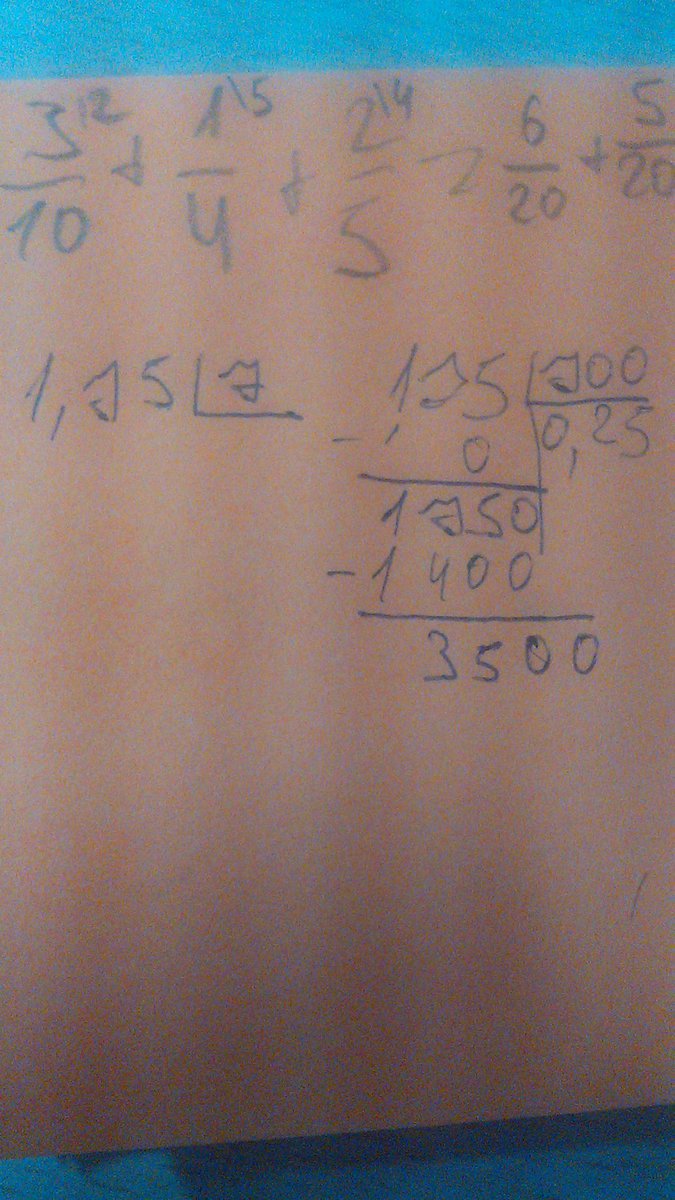 3\2/10 + 1\5/4 + 2\4/5 = 6/20 + 5/20
1,75 | 7
175 | 700
- 0 | 0,25
1750
- 1400
3500